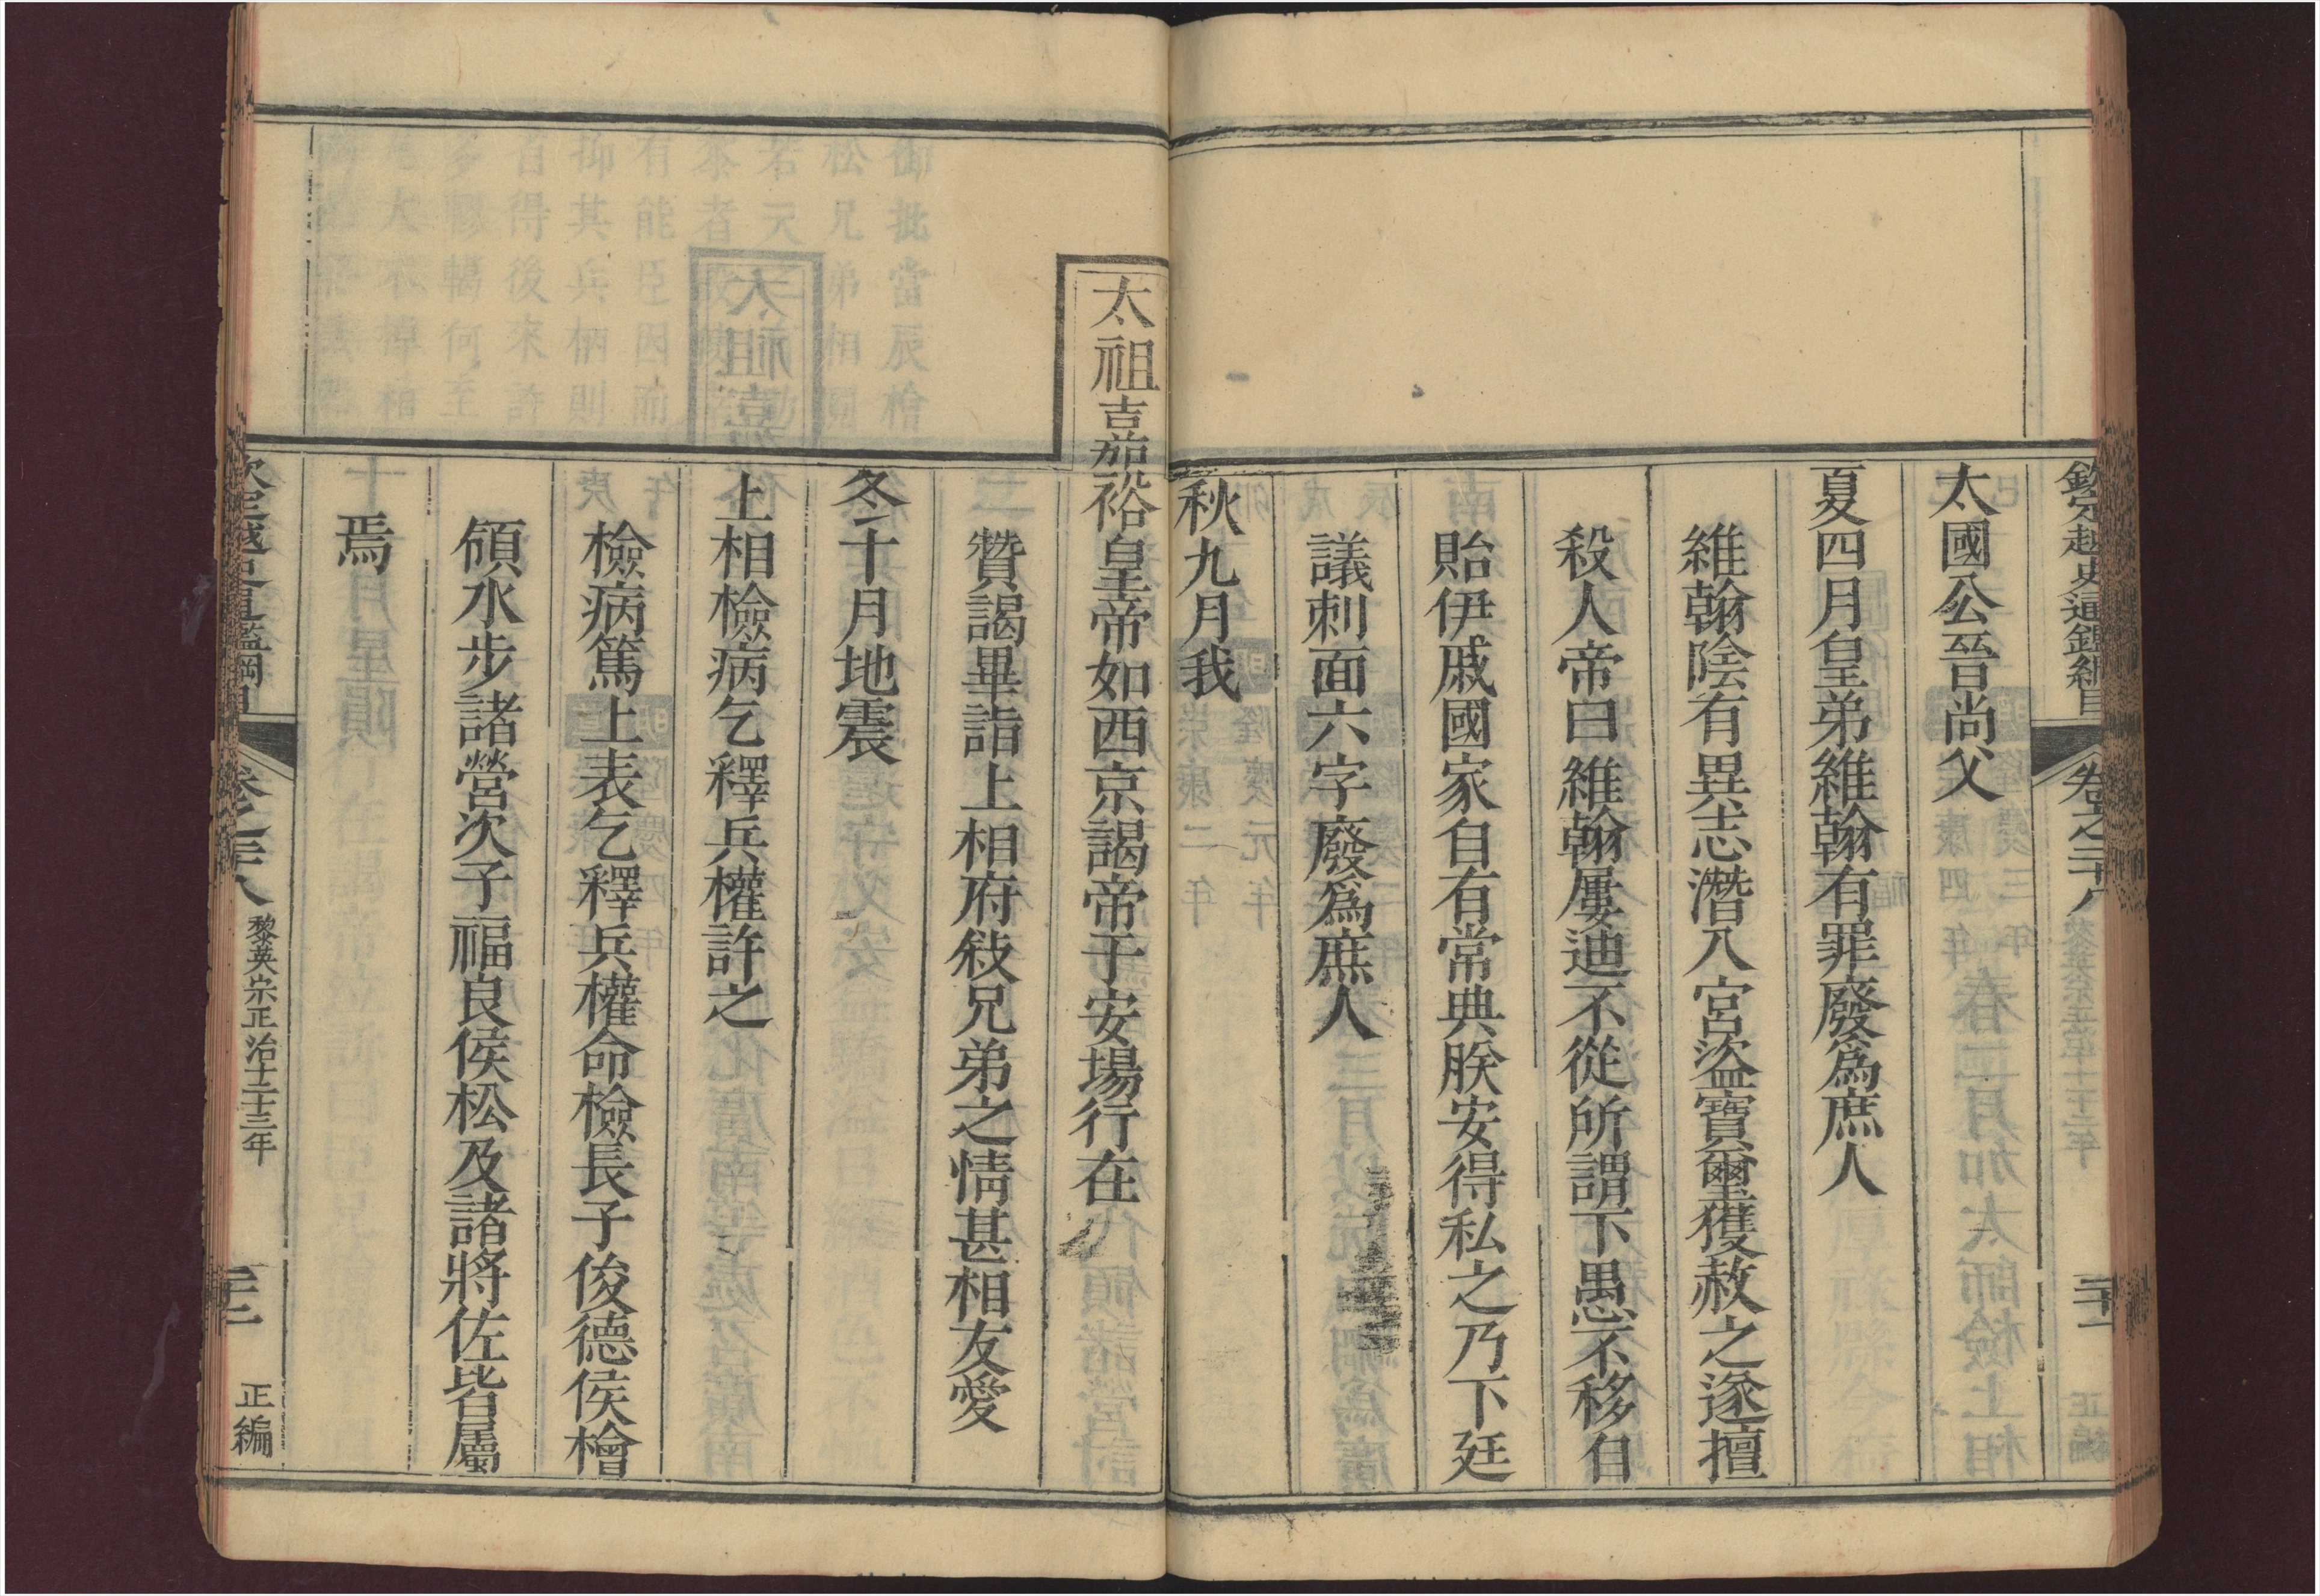 欽定越史通鑑綱目 卷之二十八
太國公晉尚父
夏四月皇弟維翰有罪廢爲庶人
維翰陰有異志潛入宮盜寶璽獲赦之遂擅
殺人帝曰維翰屢迪不從所謂下愚不移自
貽伊戚國家自有常典朕安得私之乃下廷
議刺面六字廢爲庶人
秋九月我
太祖嘉裕皇帝如西京謁帝于安場行在
贊謁畢詣上相府敍兄弟之情甚相友愛
冬十月地震
上相檢病乞釋兵權許之
檢病篤上表乞釋兵權命檢長子俊德侯檜
領水步諸營次子福良侯松及諸將佐皆屬
焉
欽定越史通鑑綱目 卷之二十八 黎英宗正治十二十三年 正編